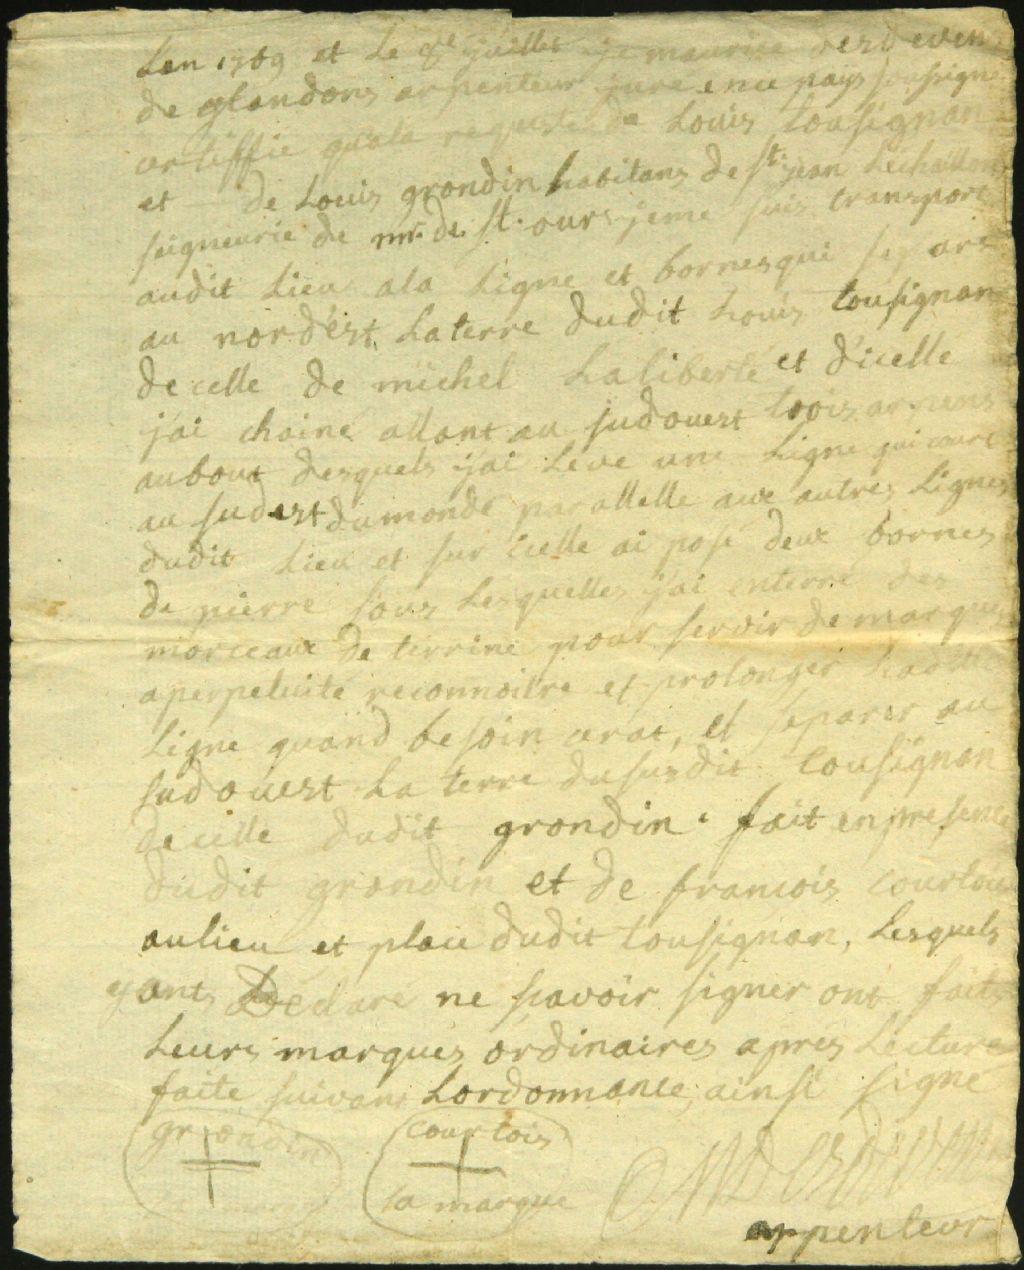 Lan 1769 et le juillet je maurice
de glandons arpenteur juré ence pays soussigné
certiffie quala requeste de Louis tousignan
et de Louis grondin habitans de st. jean Lechaillon
seigneurie de mr. de st. ours jeme suis transporté
audit Lieu ala Ligne et bornes qui separe
au nordest La terre dudit Louis tousignan
de celle de michel Laliberté et d'icelle
j'ai chainé allant au sudouest trois arpens
aubout desquels j'ai Levé une Ligne qui court
au sudest du monde parallelle aux autres Lignes
dudit Lieu et sur icelle ai posé deux bornes
de pierre sous Lesquelles j'ai enterré des
morceaux de terrine pour servoir de marque
a perpetuité reconnoitre et prolonger Ladite
Ligne quand besoin cerat, et separer au
sudouest La terre du susdit tousignan
de celle dudit grondin. fait en presence
dudit grondin et de francois courtois
au lieu et place dudit tousignan, Lesquels
yant Déclaré ne scavoir signer ont faits
Leurs marques ordinaires aprés Lecture
faite suivant Lordonnance, ainsi signé
grondin courtois
+ +
sa marque sa marque
arpenteur